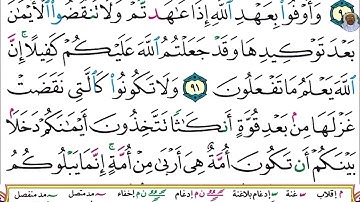 ٩٠ وَأَوْفُوا۟ بِعَهْدِ ٱللَّهِ إِذَا عَٰهَدتُّمْ وَلَا تَنقُضُوا۟ ٱلْأَيْمَٰنَ
بَعْدَ تَوْكِيدِهَا وَقَدْ جَعَلْتُمُ ٱللَّهَ عَلَيْكُمْ كَفِيلًا ۚ إِنَّ
ٱللَّهَ يَعْلَمُ مَا تَفْعَلُونَ ٩١ وَلَا تَكُونُوا۟ كَٱلَّتِى نَقَضَتْ
غَزْلَهَا مِنۢ بَعْدِ قُوَّةٍ أَنكَٰثًا تَتَّخِذُونَ أَيْمَٰنَكُمْ دَخَلًۢا
بَيْنَكُمْ أَن تَكُونَ أُمَّةٌ هِىَ أَرْبَىٰ مِنْ أُمَّةٍ ۚ إِنَّمَا يَبْلُوكُمُ
م إقلاب غنة إدغام بلاغنة إدغام إخفاء مد متصل مد منفصل